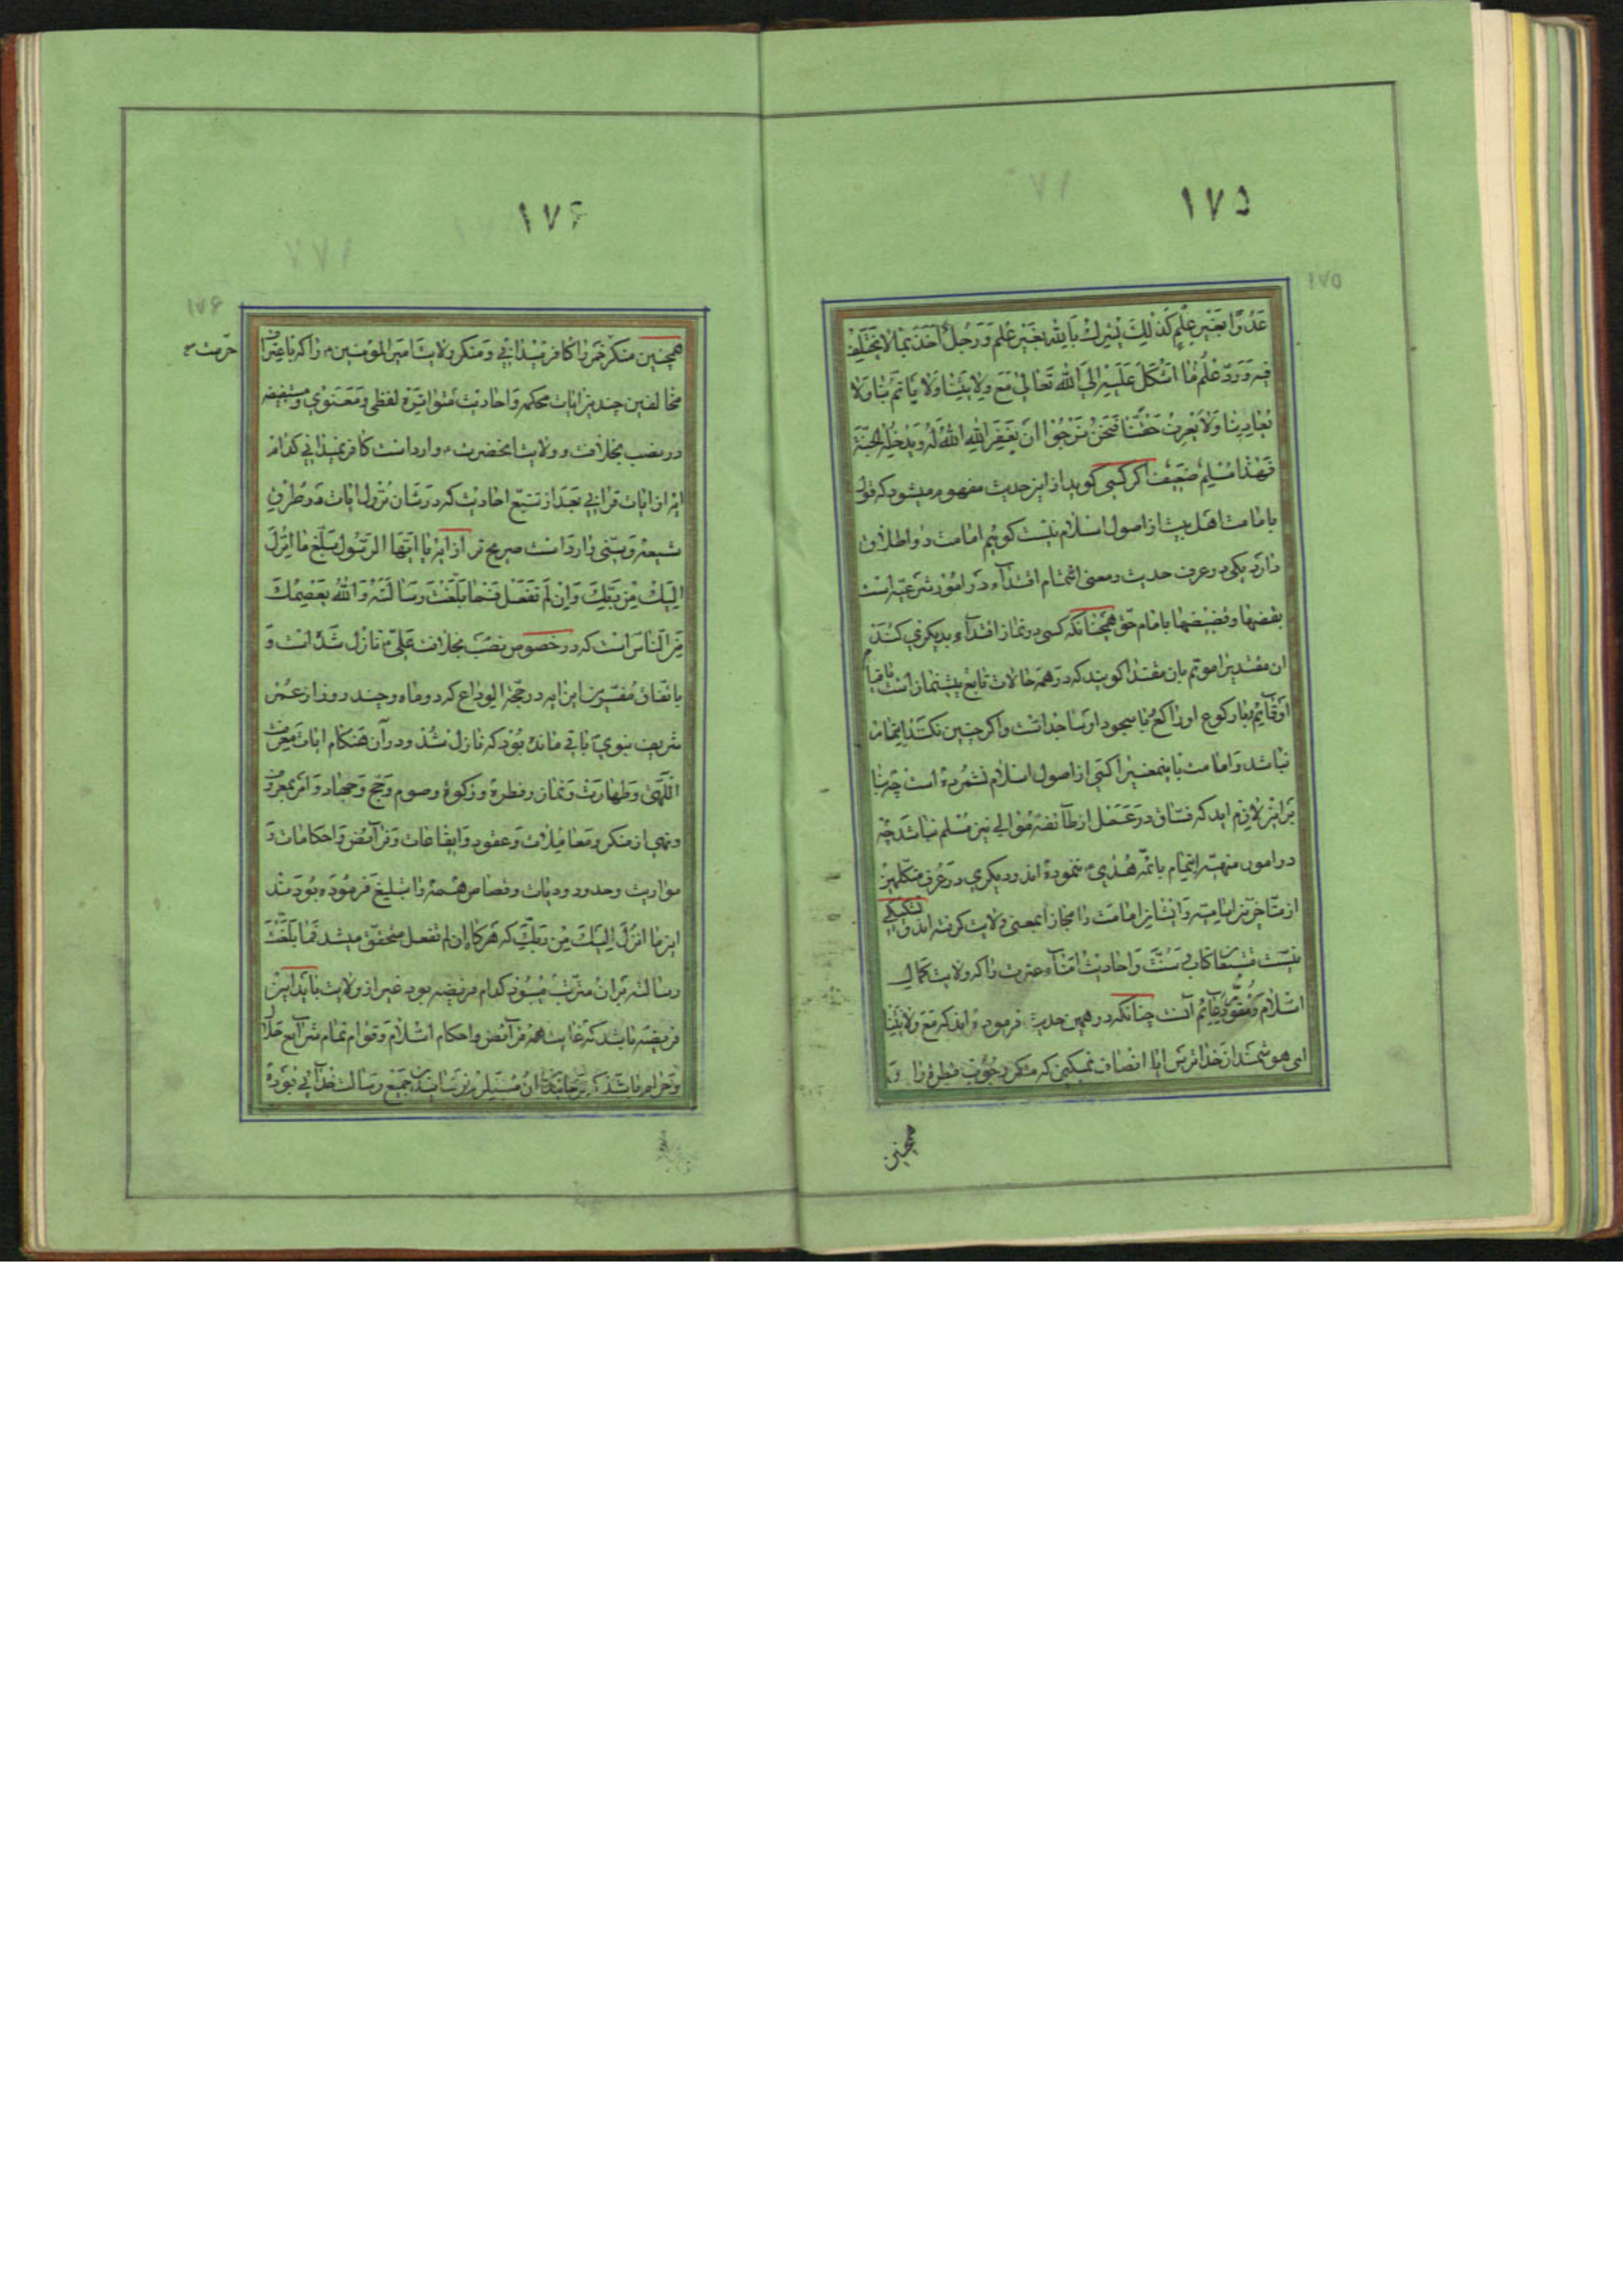 ۱۷۵
۱۷۵
عَدُوًّا بِغَیْرِ عِلْمٍ كَذٰلِكَ یُشْرِكُ بِاللّٰهِ بِغَیْرِ عِلْمٍ وَ رَجُلٌ اَخَذَ بِمَا لَا یَخْتَلِفُ
فیه وَ رَدَّ عِلْمَ مَا اَشْكَلَ عَلَیْهِ اِلَی اللّٰهِ تَعَالیٰ مَعَ وِلَایَتِنَا وَ لَا یَأتَمُّ بِنَا وَ لَا
یُعَادِینَا وَ لَا یَعْرِفُ حَقَّنَا فَنَحْنُ نَرْجُوا اَنْ یَغْفِرَ اللّٰهُ لَهُ وَ یُدْخِلَهُ الجَنَّةَ
فَهٰذَا مُسْلِمٌ ضَعِیفٌ اکر کسی کوید از این حدیث مفهوم میشود که قول
بامامت اهل بیت از اصول اسلام نیست کویم امامت دو اطلاق
دارد یکی در عرف حدیث و معنی ائتمام اقتداء در امور شرعیه است
بقضها و قضیضها بامام حق همچنانکه کسی در نماز اقتداء بدیکری کند
ان مقتدی را موتم بان مقتدا کویند که در همه حالات تابع پیشنماز است
او قایم برکوع او راکع بسجود او ساجد است و اکر چنین نکند ایتمام
نباشد و امامت باینمعنی را کسی از اصول اسلام نشمرده است چه بنا
براین لازم اید که فساق در عمل از طائفه موالی نیز مسلم نباشد چه
در امور منهیه ایتمام بائمه هدی نموده اند و دیکری در عرف متکلمین
از متاخرین امامیه و ایشان امامت را مجازا بمعنی ولایت کرفته اند و شکی
نیست کتاب و سنت و احادیث امناء عترت را که ولایت کمال
اسلام و مقوّم آنست چنانکه در همین حدیث فرموده اند که مع ولایتنا
ای هوشمند از خدا ترس ایا انصاف نمیکنی که منکر وجوب فطره را و
همچنین
۱۷۶
۱۷۶
همچنین منکر خمر را کافر میدانی و منکر ولایت امیر المؤمنین را که باعتراف
حرمت صح
مخالفین چندین ایات محکمه و احادیث متواتره لفظی و معنوی و مستفیضه
در نصب بخلافت و ولایت انحضرت وارد است کافر نمیدانی کدام
ایه از ایات قرانی بعد از تتبع احادیث که در شان نزول ایات در طرق
شیعه و سنی وارد است صریح تر از ایه یا ایّها الرّسول بلّغ ما انزل
الیك من ربّك و ان لم تفعل فما بلّغت رسالته و اللّه یعصمك
من الناس است که در خصوص نصب بخلافت علی نازل شده است و
باتفاق مفسرین این ایه در حجّة الوداع که دو ماه و چند روز از عمر
شریف نبوی باقی مانده بود که نازل شد و در آن هنکام ایات معرفت
اللّهی و طهارت و نماز و فطره و زکوة و صوم و حج و جهاد و امر بمعروف
و نهی از منکر و معاملات و عقود و ایقاعات و فرائض و احکامات و
مواریث و حدود و دیات و قصاص همه را تبلیغ فرموده بودند
این ما انزل الیك من ربّك که هرکاه ان لم تفعل متحقق میشد فما بلّغت
رسالته بران مترتب میبود کدام فریضه بود غیر از ولایت باید این
فریضه باشد که غایت همه فرائض و احکام اسلام و قوام تمام شرایع حلال
و حرام باشد که نرسانیدن ان مستلزم نرسانیدن جمیع رسالت خدائی بوده